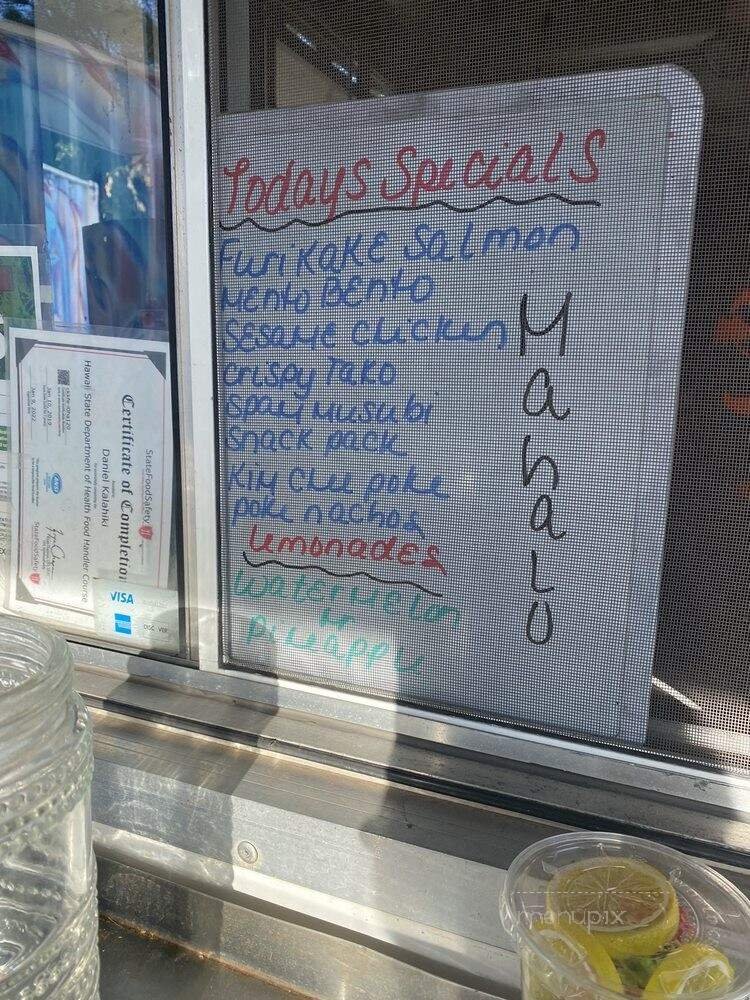 Todays Specials
Furikake Salmon
Mento Bento
Sesame Chicken
Crispy Tako
Spam Musubi
Snack pack
Kim Chee poke
poke nachos
Lemonades
Watermelon
or
Pineapple
Mahalo
StateFoodSafety
Certificate of Completion
Daniel Kalahiki
Hawaii State Department of Health Food Handler Course
Jan 10, 2019
Jan 9, 2022
StateFoodSafety
VISA
DISCOVER
menupix